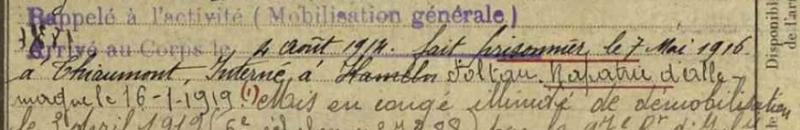 Rappelé à l'activité (Mobilisation générale)
Arrivé au Corps le 4 août 1914. fait prisonnier, le 7 Mai 1916
à Thiaumont, Interné à Hameln Soltau. Rapatrié d'Alle-
magne le 16-1-1919 (1) Mis en congé illimité de démobilisation
le avril 1919 (6e
Disponibi
de l'arm